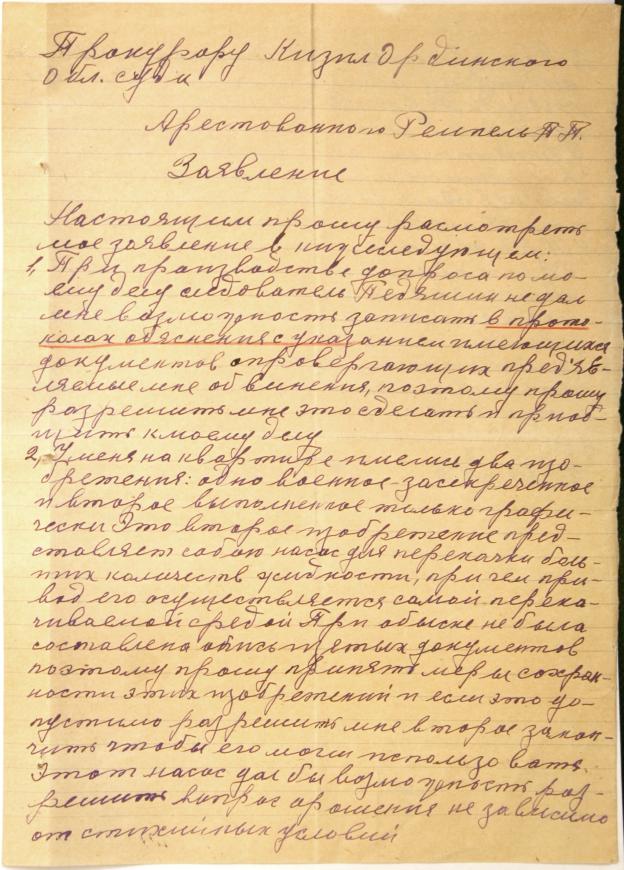 Прокурору Кизил Ординского
Обл. суда
Арестованного Ремпель П.П.
Заявление
Настоящим прошу расмотреть
мое заявление в нижеследующем:
1, При производстве допроса по мо-
ему делу следователь Педяшин не дал
мне возможность записать в прото-
колах обяснения с указанием имеющихся
документов опровергающих пред'яв-
ляемые мне обвинения, поэтому прошу
разрешить мне это сделать и приоб-
щить к моему делу
2, У меня на квартире имелись два изо-
бретения: одно военное-засекреченное
и второе выполненное только графи-
чески Это второе изобретение пред-
ставляет собою насос для перекачки боль-
ших количеств жидкости, при чем при-
вод его осуществляется самой перека-
чиваемой средой При обыске не была
составлена опись изятых документов
поэтому прошу принять меры сохран-
ности этих изобретений и если это до-
пустимо разрешить мне второе закон-
чить чтобы его могли использовать.
Этот насос дал бы возможность раз-
решить вопрос орошения не зависимо
от стихийных условий